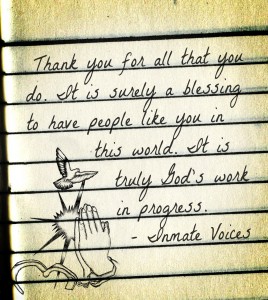 Thank you for all that you
do. It is surely a blessing
to have people like you in
this world. It is
truly God's work
in progress.
- Inmate Voices